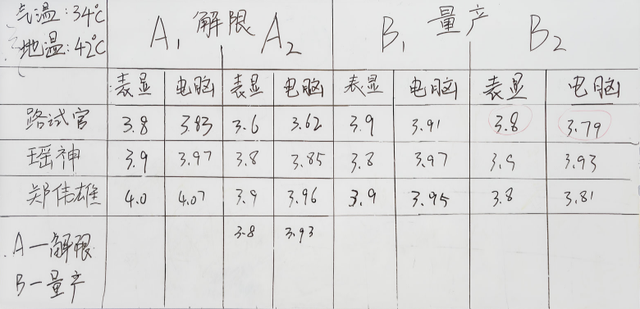 气温:34℃
地温:42℃
A1 解限 A2 B1 量产 B2
表显 电脑 表显 电脑 表显 电脑 表显 电脑
路试官 3.8 3.83 3.6 3.62 3.9 3.91 3.8 3.79
瑶神 3.9 3.97 3.8 3.85 3.8 3.97 3.9 3.93
郑伟雄 4.0 4.07 3.9 3.96 3.9 3.95 3.8 3.81
A—解限 3.8 3.93
B—量产